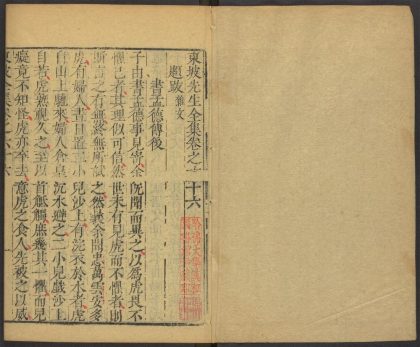 東坡先生全集卷之六十六
題跋 雜文
書孟德傳後
子由書孟德事見寄余既聞而異之以爲虎畏不
懼己者其理似可信然世未有見虎而不懼者則
斯言之有無終無所試之然曩余聞忠萬雲安多
虎有婦人晝日置二小兒沙上而浣衣於水者虎
自山上馳來婦人倉皇沉水避之二小兒戲沙上
自若虎熟視久之至以首觝觸庶幾其一懼而兒
癡竟不知怪虎亦卒去意虎之食人先被之以威
東坡全集卷之六十六